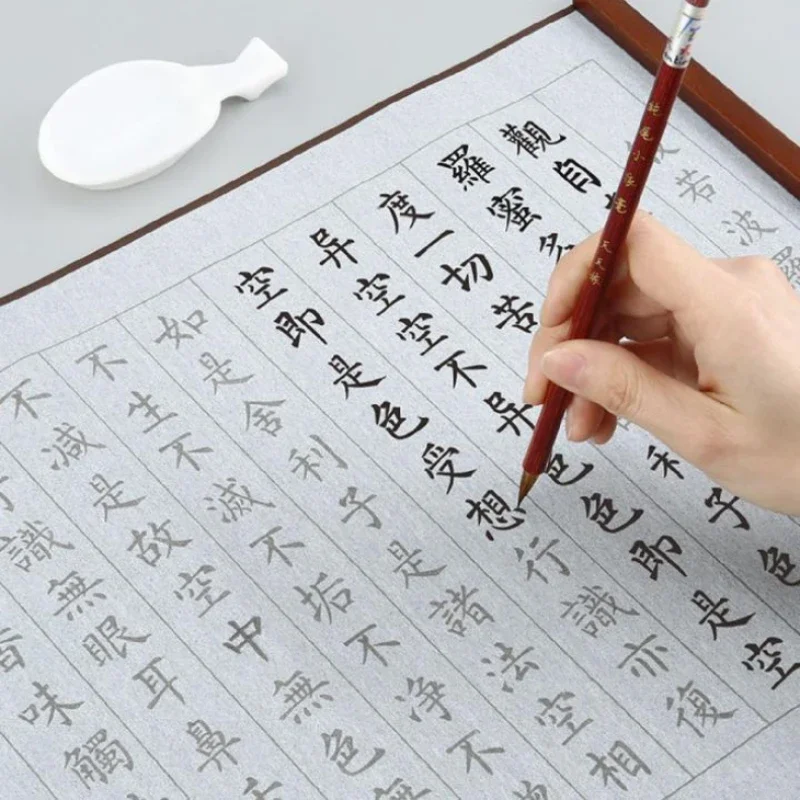 若波羅
觀自
羅蜜多
度一切苦利子色
异空空不异色色即是空
空即是色受想行識亦復
如是舍利子是諸法空相
不生不滅不垢不淨不
不減是故空中無色無
識無眼耳鼻
香味觸